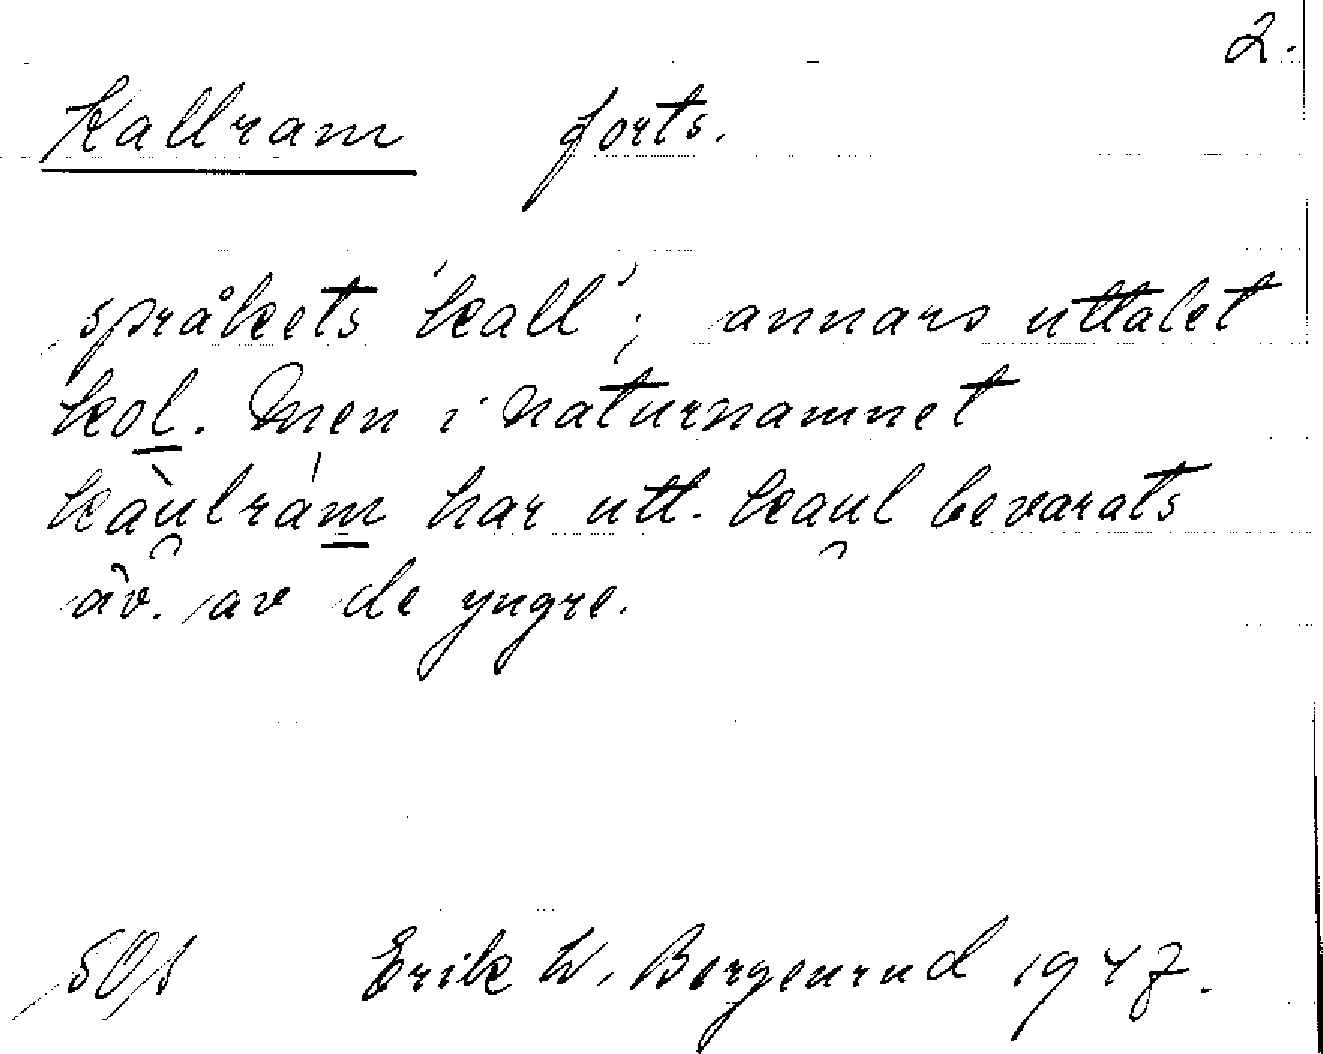 2.
Kallram forts.
språkets 'kall'; annars uttalet
kol. Men i naturnamnet
kàulrám har utt. kaul bevarats
äv. av de yngre.
Erik W. Borgenrud 1947.